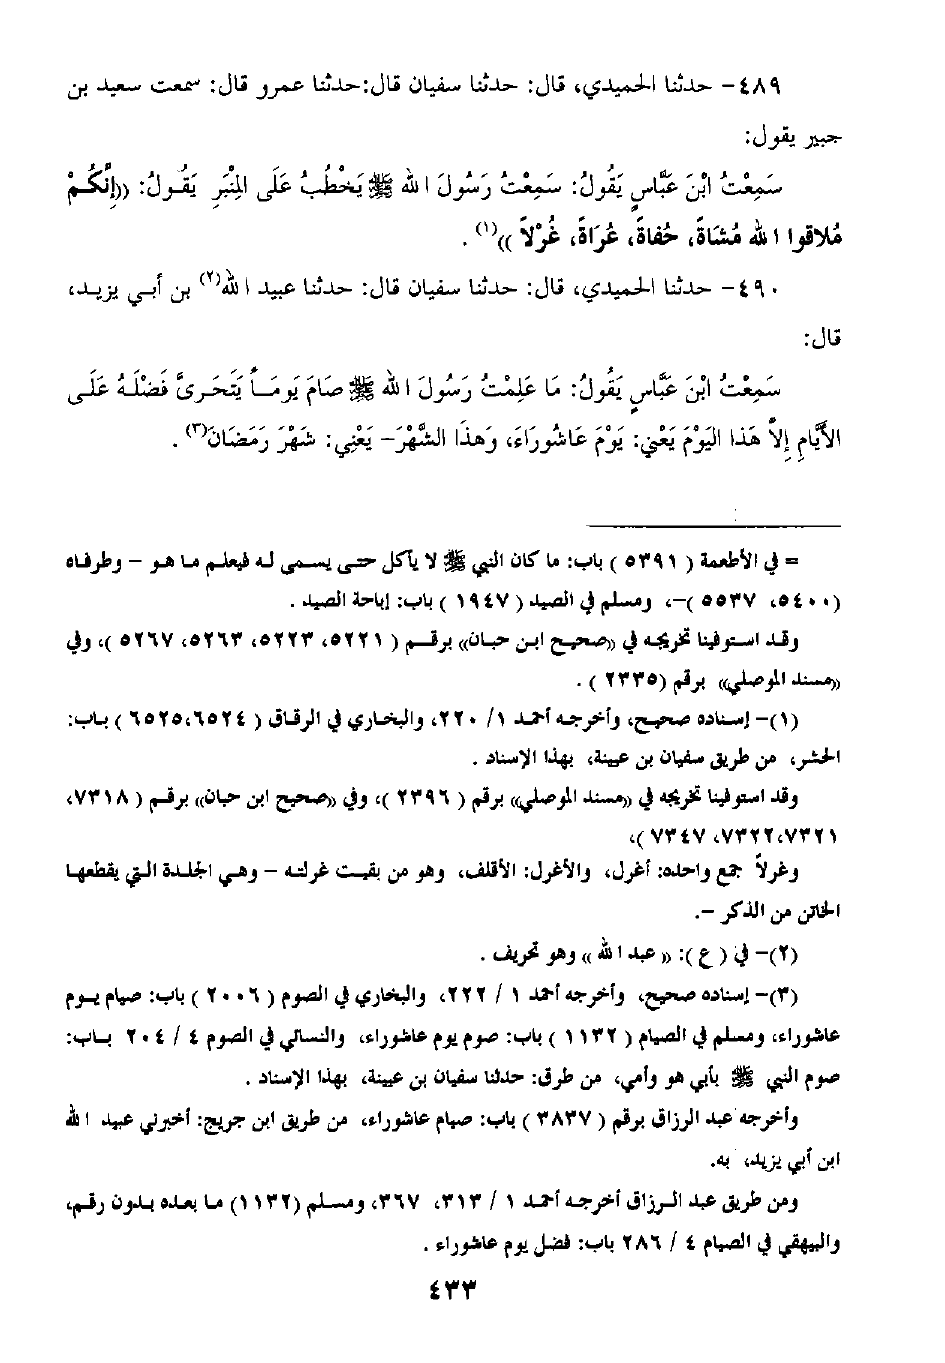 ٤٨٩- حدثنا الحميدي، قال: حدثنا سفيان قال:حدثنا عمرو قال: سمعت سعيد بن
جبير يقول:
سَمِعْتُ ابْنَ عَبَّاسٍ يَقُولُ: سَمِعْتُ رَسُولَ الله ﷺ يَخْطُبُ عَلَى المِنْبَرِ يَقُولُ: ((إِنَّكُمْ
مُلاقوا الله مُشَاةً، حُفاةً، عُرَاةً، غُرْلاً ))(١) .
٤٩٠- حدثنا الحميدي، قال: حدثنا سفيان قال: حدثنا عبيد الله(٢) بن أبي يزيد،
قال:
سَمِعْتُ ابْنَ عَبَّاسٍ يَقُولُ: مَا عَلِمْتُ رَسُولَ الله ﷺ صَامَ يَوماً يَتَحَرىَّ فَضْلَهُ عَلَى
الأَيَّامِ إِلاَّ هَذا اليَوْمَ يَعْنِي: يَوْمَ عَاشُورَاءَ، وَهذَا الشَّهْرَ- يَعْنِي: شَهْرَ رَمَضَانَ(٣) .
= في الأطعمة ( ٥٣٩١ ) باب: ما كان النبي ﷺ لا يأكل حتى يسمى له فيعلم ما هو – وطرفاه
(٥٤٠٠، ٥٥٣٧ )–، ومسلم في الصيد ( ١٩٤٧ ) باب: إباحة الصيد .
وقد استوفينا تخريجه في ((صحيح ابن حبان)) برقم ( ٥٢٢١، ٥٢٢٣، ٥٢٦٣، ٥٢٦٧ )، وفي
((مسند الموصلي)) برقم (٢٣٣٥ ) .
(١)– إسناده صحيح، وأخرجه أحمد ١/ ٢٢٠، والبخاري في الرقاق ( ٦٥٢٤،٦٥٢٥ ) باب:
الحشر، من طريق سفيان بن عيينة، بهذا الإسناد .
وقد استوفينا تخريجه في ((مسند الموصلي)) برقم ( ٢٣٩٦ )، وفي ((صحيح ابن حبان)) برقم ( ٧٣١٨،
٧٣٢١،٧٣٢٢، ٧٣٤٧ )،
وغرلاً جمع واحده: أغرل، والأغرل: الأقلف، وهو من بقيت غرلته – وهي الجلدة التي يقطعها
الخاتن من الذكر –.
(٢)– في ( ع ): (( عبد الله )) وهو تحريف .
(٣)– إسناده صحيح، وأخرجه أحمد ١ / ٢٢٢، والبخاري في الصوم ( ٢٠٠٦ ) باب: صيام يوم
عاشوراء، ومسلم في الصيام ( ١١٣٢ ) باب: صوم يوم عاشوراء، والنسائي في الصوم ٤ / ٢٠٤ باب:
صوم النبي ﷺ بأبي هو وأمي، من طرق: حدثنا سفيان بن عيينة، بهذا الإسناد .
وأخرجه عبد الرزاق برقم ( ٣٨٣٧ ) باب: صيام عاشوراء، من طريق ابن جريج: أخبرني عبيد الله
ابن أبي يزيد، به.
ومن طريق عبد الرزاق أخرجه أحمد ١ / ٣١٣، ٣٦٧، ومسلم (١١٣٢) ما بعده بدون رقم،
والبيهقي في الصيام ٤ / ٢٨٦ باب: فضل يوم عاشوراء .
٤٣٣